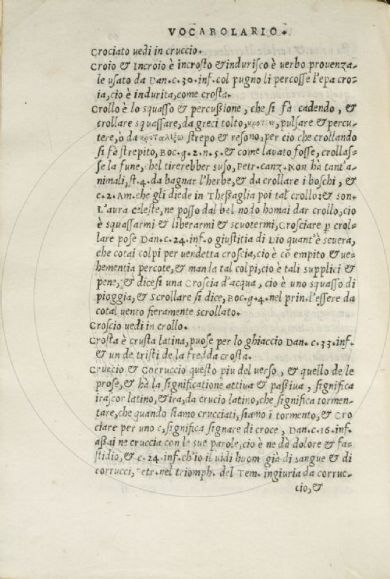 VOCABOLARIO.
Crociato uedi in cruccio.
Croio & Incroio è incrosto & indurisco è uerbo prouenza-
le usato da Dan. c. 30. inf. col pugno li percosse l'epa cro-
ia, cio è indurita, come crosta.
Crollo è lo squasso & percussione, che si fà cadendo, &
crollare squassare, da greci tolto, pulsare & percu-
tere, ò da strepo & resono, per cio che crollando
si fè strepito, Boc. g. 2. n. 5. & come lauato fosse, crollas-
se la fune, chel tirerebber suso, Petr. canz. Non hà tant'a-
nimali, st. 4. da bagnar l'herbe, & da crollare i boschi, &
c. 2. Am. che gli diede in Thessaglia poi tal crollo: & son.
L'aura celeste, ne posso dal bel nodo homai dar crollo, cio
è squassarmi & liberarmi & scuotermi, Crosciare p crol-
lare pose Dan. c. 24. inf. o giustitia di Dio quant'è seuera,
che cotai colpi per uendetta croscia, cio è cõ empito & ue-
hementia percote, & manda tal colpi, cio è tali supplici &
pene, & dicesi una Croscia d'acqua, cio è uno squasso di
pioggia, & Scrollare si dice, Boc. g. 4. nel prin. l'essere da
cotal uento fieramente scrollato.
Croscio uedi in crollo.
Crosta è crusta latina, puose per lo ghiaccio Dan. c. 33. inf.
& un de tristi de la fredda crosta.
Cruccio & Corruccio questo piu del uerso, & quello de le
prose, & hà la significatione attiua & passiua, significa
ira, cor latino, & ira, da crucio latino, che significa tormen-
tare, che quando siamo crucciati, siamo i tormento, & Cro
ciare per uno c, significa signare di croce, Dan. c. 16. inf.
assai ne cruccia con le sue parole, cio è ne dà dolore & fa-
stidio, & c. 24. inf. ch'io il uidi huom già di sangue & di
corrucci, Petr. nel triomph. del Tem. ingiuria da corruc-
cio, &